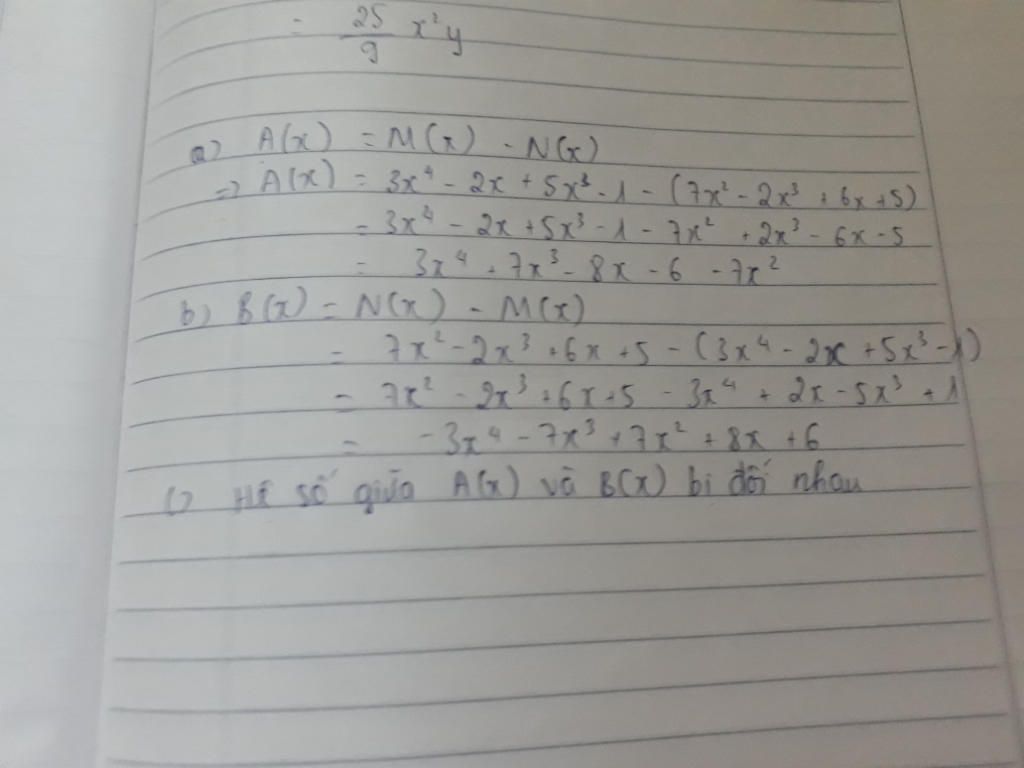 = 25/9 x²y
a) A(x) = M(x) - N(x)
=> A(x) = 3x⁴ - 2x + 5x³ - 1 - (7x² - 2x³ + 6x + 5)
= 3x⁴ - 2x + 5x³ - 1 - 7x² + 2x³ - 6x - 5
= 3x⁴ + 7x³ - 8x - 6 - 7x²
b) B(x) = N(x) - M(x)
= 7x² - 2x³ + 6x + 5 - (3x⁴ - 2x + 5x³ - 1)
= 7x² - 2x³ + 6x + 5 - 3x⁴ + 2x - 5x³ + 1
= -3x⁴ - 7x³ + 7x² + 8x + 6
c) Hệ số giữa A(x) và B(x) bị đối nhau